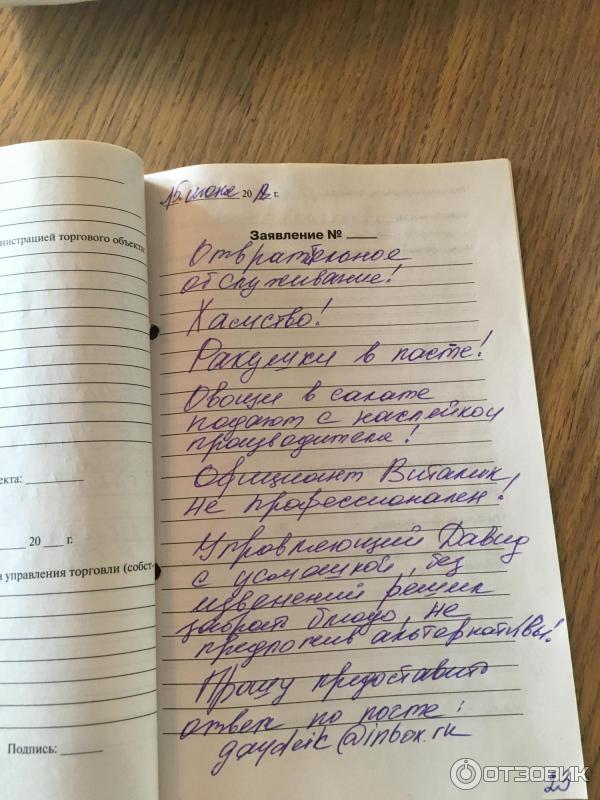 нистрацией торгового объекта:
екта:
20 г.
а управления торговли (собст-
Подпись:
15 июня 20 г.
Заявление №
Отвратительное
обслуживание!
Хамство!
Ракушки в пасте!
Овощи в салате
подают с наклейкой
производителя!
Официант Виталик
не профессионален!
Управляющий Давид
с усмешкой, без
извенений решил
забрать блюдо, не
предложив альтернативы!
Прошу предоставить
ответ по почте:
gaydeik@inbox.ru
ОТЗОВИК